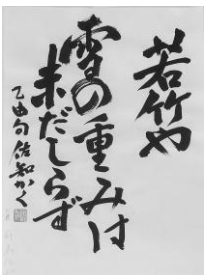 若竹や
雪の重みは
未だしらず
乙由句 佐知かく